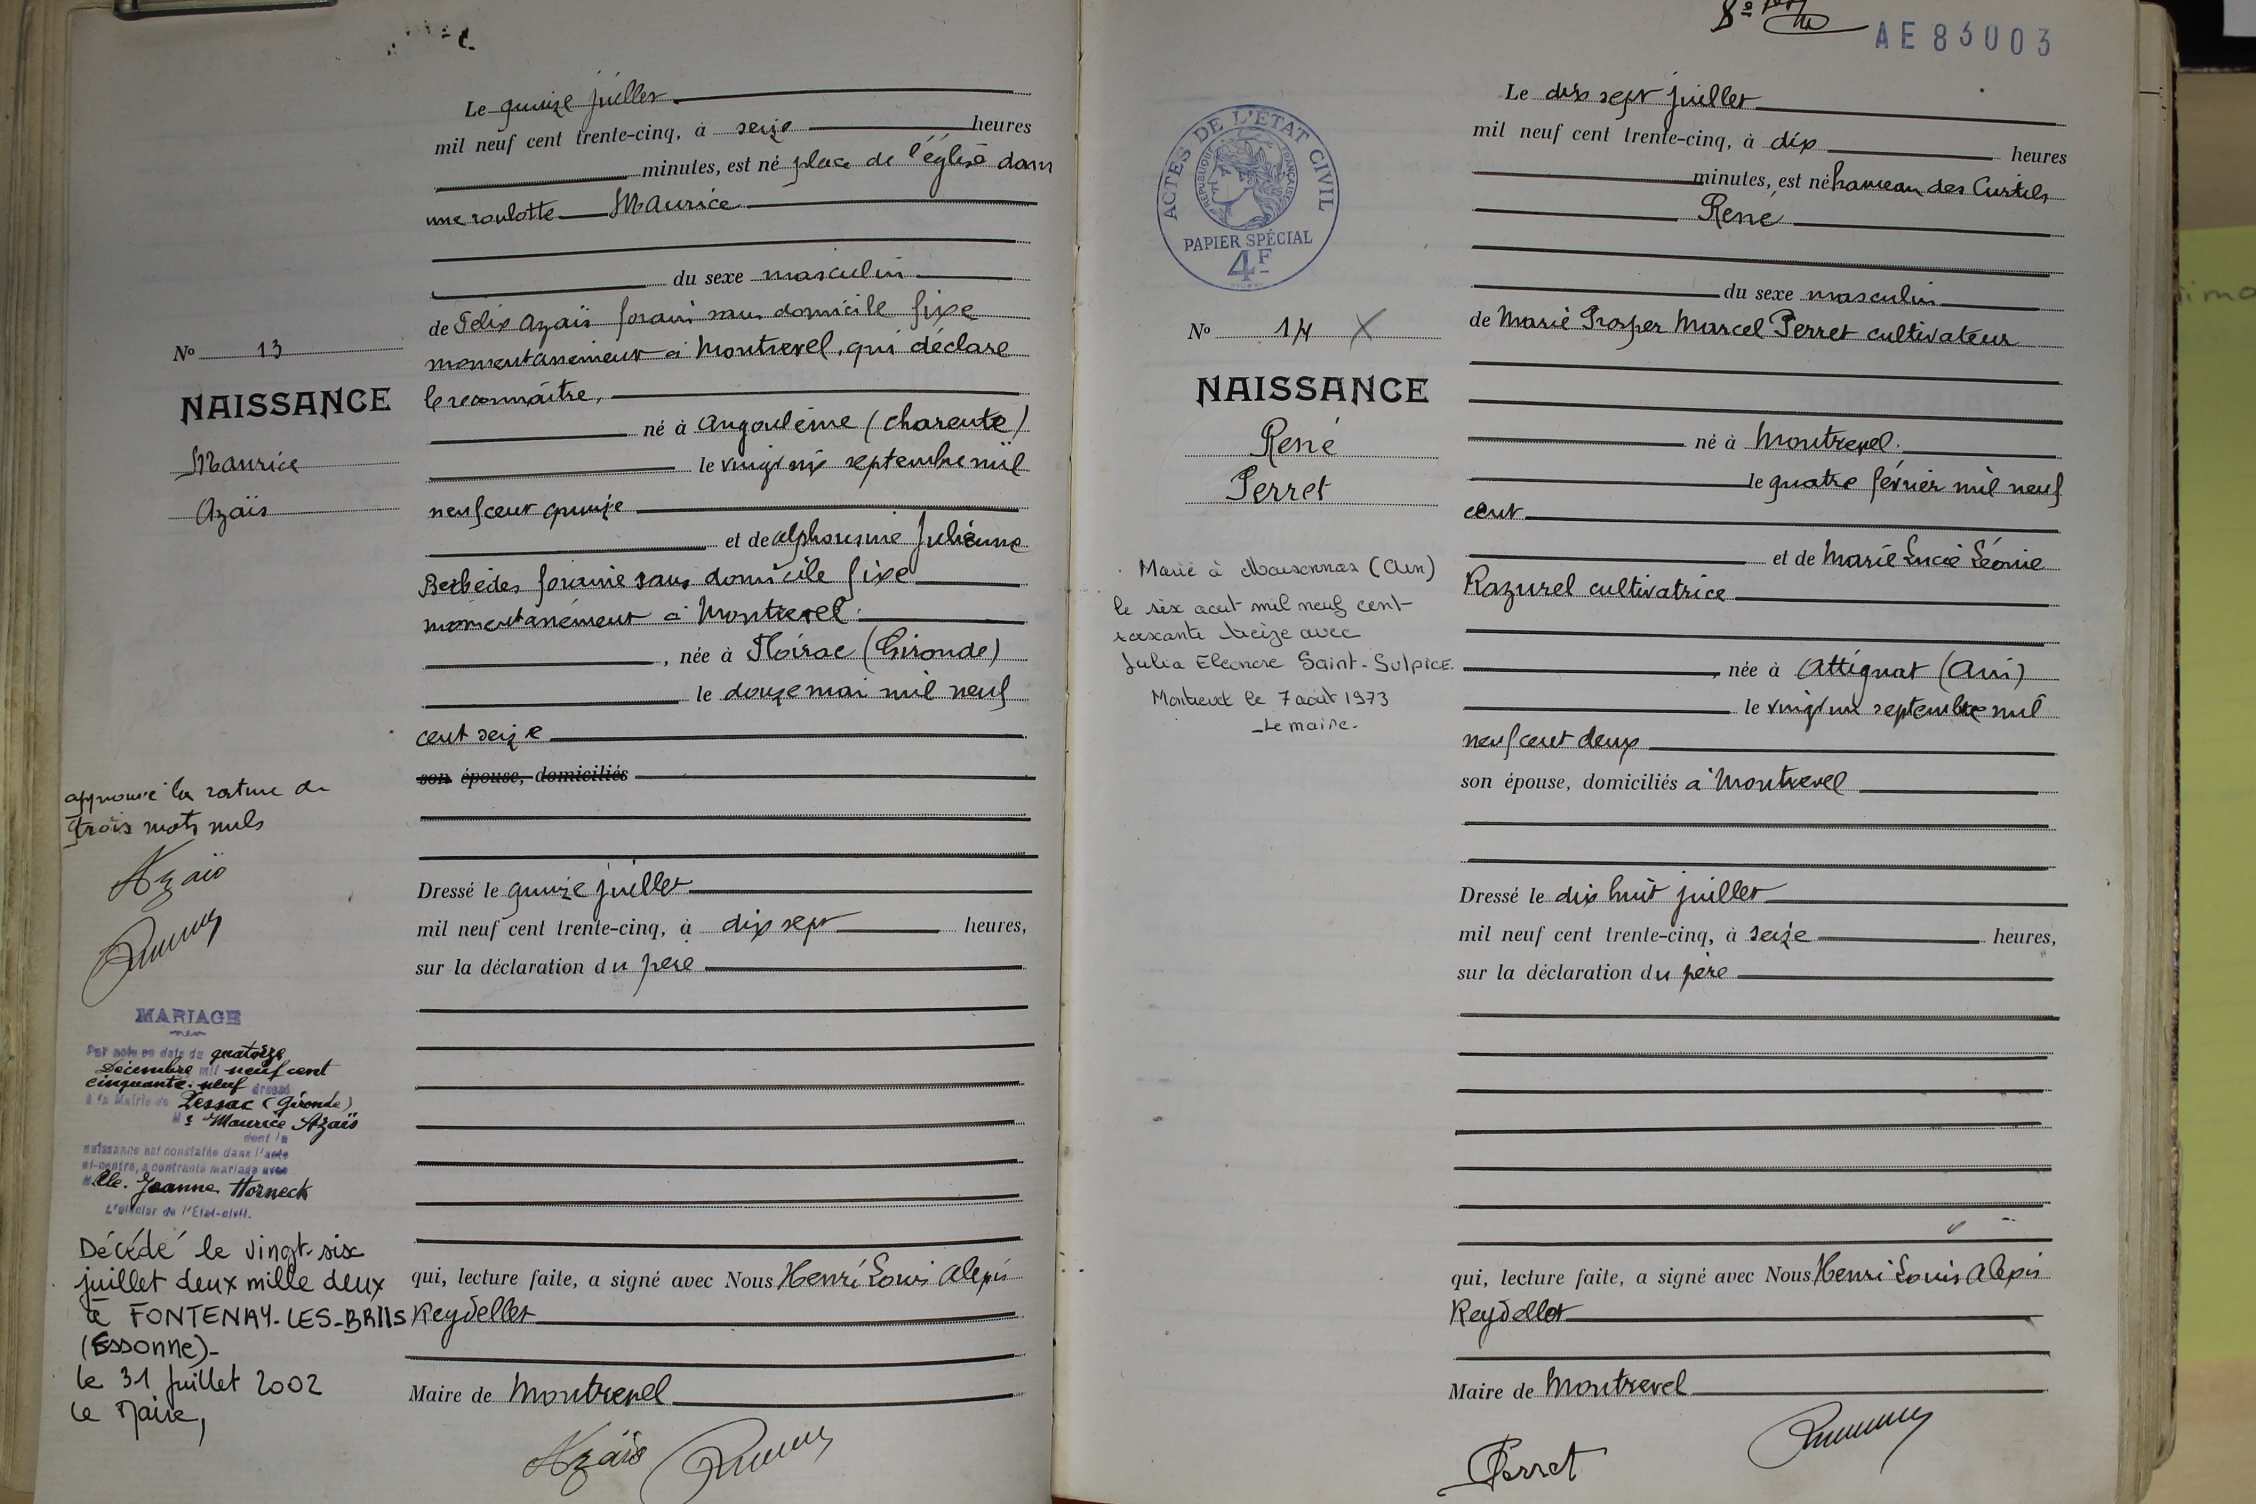 Le quinze juillet
mil neuf cent trente-cinq, à seize heures
minutes, est né place de l'église dans
une roulotte Maurice
du sexe masculin
de Félix Azaïs forain sans domicile fixe
momentanément à Montrevel, qui déclare
le reconnaître,
né à Angoulême (Charente)
le vingt six septembre mil
neuf cent quinze
et de Alphonsine Julienne
Berbèdes foraine sans domicile fixe
momentanément à Montrevel.
, née à Floirac (Gironde)
le douze mai mil neuf
cent seize
son épouse, domiciliés
Dressé le quinze juillet
mil neuf cent trente-cinq, à dix sept heures,
sur la déclaration du père
qui, lecture faite, a signé avec Nous Henri Louis Alexis
Reydellet
Maire de Montrevel
Azaïs
No 13
NAISSANCE
Maurice
Azaïs
approuvé la rature de
trois mots nuls
Azaïs
MARIAGE
Par acte en date du quatorze
Décembre mil neuf cent
cinquante-neuf dressé
à la Mairie de Pessac (Gironde)
Mr Maurice Azaïs
dont la
naissance est constatée dans l'acte
ci-contre, a contracté mariage avec
Mlle. Jeanne Horneck
L'officier de l'Etat-civil.
Décédé le vingt-six
juillet deux mille deux
à FONTENAY-LES-BRIIS
(Essonne)-
le 31 Juillet 2002
Le Maire,
AE83003
Le dix sept juillet
mil neuf cent trente-cinq, à dix heures
minutes, est né hameau des Curtils
René
du sexe masculin
de Marie Prosper Marcel Perret cultivateur
né à Montrevel.
le quatre février mil neuf
cent
et de Marie Lucie Léonie
Razurel cultivatrice
née à Attignat (Ain)
le vingt un septembre mil
neuf cent deux
son épouse, domiciliés à Montrevel
Dressé le dix huit juillet
mil neuf cent trente-cinq, à seize heures,
sur la déclaration du père
qui, lecture faite, a signé avec Nous Henri Louis Alexis
Reydellet
Maire de Montrevel
Perret
ACTES DE L'ETAT CIVIL
REPUBLIQUE FRANÇAISE
PAPIER SPÉCIAL
4F
No 14 X
NAISSANCE
René
Perret
Marié à Marsonnas (Ain)
le six août mil neuf cent
soixante treize avec
Julia Eleonore Saint-Sulpice.
Montrevel le 7 août 1973
Le maire.